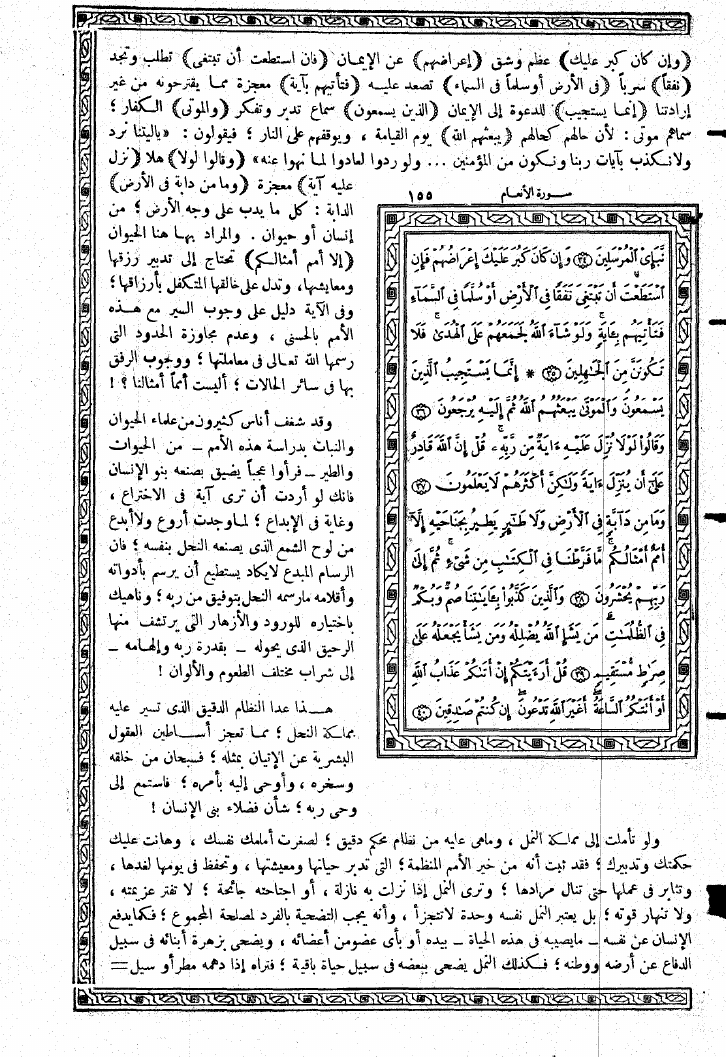 (وإن كان كبر عليك) عظم وشق (إعراضهم) عن الإيمان (فان استطعت أن تبتغى) تطلب وتجد
(نفقاً) سرباً (فى الأرض أو سلماً فى السماء) تصعد عليه (فتأتيهم بآية) معجزة مما يقترحونه من غير
إرادتنا (إنما يستجيب) للدعوة إلى الإيمان (الذين يسمعون) سماع تدبر وتفكر (والموتى) الكفار؛
سماهم موتى: لأن حالهم كحالهم (يبعثهم الله) يوم القيامة، ويوقفهم على النار؛ فيقولون: «ياليتنا نرد
ولا نكذب بآيات ربنا ونكون من المؤمنين ... ولو ردوا لعادوا لما نهوا عنه» (وقالوا لولا) هلا (نزل
عليه آية) معجزة (وما من دابة فى الأرض)
الدابة: كل ما يدب على وجه الأرض؛ من
إنسان أو حيوان. والمراد بها هنا الحيوان
(إلا أمم أمثالكم) تحتاج إلى تدبير رزقها
ومعايشها، وتدل على خالقها المتكفل بأرزاقها؛
وفى الآية دليل على وجوب السير مع هذه
الأمم بالحسنى، وعدم مجاوزة الحدود التى
رسمها الله تعالى فى معاملتها؛ ووجوب الرفق
بها فى سائر الحالات؛ أليست أمماً أمثالنا؟!
وقد شغف أناس كثيرون من علماء الحيوان
والنبات بدراسة هذه الأمم – من الحيوات
والطير – فرأوا عجباً يضيق بصنعه بنو الإنسان
فانك لو أردت أن ترى آية فى الاختراع،
وغاية فى الإبداع؛ لما وجدت أروع ولا أبدع
من لوح الشمع الذى يصنعه النحل بنفسه؛ فان
الرسام المبدع لا يكاد يستطيع أن يرسم بأدواته
وأقلامه مارسمه النحل بتوفيق من ربه؛ وناهيك
باختياره للورود والأزهار التى يرتشف منها
الرحيق الذى يحوله – بقدرة ربه وإلهامه –
إلى شراب مختلف الطعوم والألوان!
هذا عدا النظام الدقيق الذى تسير عليه
مملكة النحل؛ مما تعجز أساطين العقول
البشرية عن الإتيان بمثله؛ فسبحان من خلقه
وسخره، وأوحى إليه بأمره؛ فاستمع إلى
وحى ربه؛ شأن فضلاء بنى الإنسان!
سورة الأنعام ١٥٥
نَّبَإِى۟ ٱلْمُرْسَلِينَ ﴿٣٤﴾ وَإِن كَانَ كَبُرَ عَلَيْكَ إِعْرَاضُهُمْ فَإِنِ
ٱسْتَطَعْتَ أَن تَبْتَغِىَ نَفَقًا فِى ٱلْأَرْضِ أَوْ سُلَّمًا فِى ٱلسَّمَآءِ
فَتَأْتِيَهُم بِـَٔايَةٍ وَلَوْ شَآءَ ٱللَّهُ لَجَمَعَهُمْ عَلَى ٱلْهُدَىٰ فَلَا
تَكُونَنَّ مِنَ ٱلْجَـٰهِلِينَ ﴿٣٥﴾ * إِنَّمَا يَسْتَجِيبُ ٱلَّذِينَ
يَسْمَعُونَ وَٱلْمَوْتَىٰ يَبْعَثُهُمُ ٱللَّهُ ثُمَّ إِلَيْهِ يُرْجَعُونَ ﴿٣٦﴾
وَقَالُوا۟ لَوْلَا نُزِّلَ عَلَيْهِ ءَايَةٌ مِّن رَّبِّهِۦ قُلْ إِنَّ ٱللَّهَ قَادِرٌ
عَلَىٰٓ أَن يُنَزِّلَ ءَايَةً وَلَـٰكِنَّ أَكْثَرَهُمْ لَا يَعْلَمُونَ ﴿٣٧﴾
وَمَا مِن دَآبَّةٍ فِى ٱلْأَرْضِ وَلَا طَـٰٓئِرٍ يَطِيرُ بِجَنَاحَيْهِ إِلَّآ
أُمَمٌ أَمْثَالُكُم مَّا فَرَّطْنَا فِى ٱلْكِتَـٰبِ مِن شَىْءٍ ثُمَّ إِلَىٰ
رَبِّهِمْ يُحْشَرُونَ ﴿٣٨﴾ وَٱلَّذِينَ كَذَّبُوا۟ بِـَٔايَـٰتِنَا صُمٌّ وَبُكْمٌ
فِى ٱلظُّلُمَـٰتِ مَن يَشَإِ ٱللَّهُ يُضْلِلْهُ وَمَن يَشَأْ يَجْعَلْهُ عَلَىٰ
صِرَٰطٍ مُّسْتَقِيمٍ ﴿٣٩﴾ قُلْ أَرَءَيْتَكُمْ إِنْ أَتَىٰكُمْ عَذَابُ ٱللَّهِ
أَوْ أَتَتْكُمُ ٱلسَّاعَةُ أَغَيْرَ ٱللَّهِ تَدْعُونَ إِن كُنتُمْ صَـٰدِقِينَ ﴿٤٠﴾
ولو تأملت إلى مملكة النمل، وماهى عليه من نظام محكم دقيق؛ لصغرت أمامك نفسك، وهانت عليك
حكمتك وتدبيرك؛ فقد ثبت أنه من خير الأمم المنظمة؛ التى تدبر حياتها ومعيشتها، وتحفظ فى يومها لغدها،
وتثابر فى عملها حتى تنال مرادها؛ وترى النمل إذا نزلت به نازلة، أو اجتاحته جائحة؛ لا تفتر عزيمته،
ولا تنهار قوته؛ بل يعتبر النمل نفسه وحدة لا تتجزأ، وأنه يجب التضحية بالفرد لمصلحة المجموع؛ فكما يدفع
الإنسان عن نفسه – مايصيبه فى هذه الحياة – بيده أو بأى عضو من أعضائه، ويضحى بزهرة أبنائه فى سبيل
الدفاع عن أرضه ووطنه؛ فكذلك النمل يضحى ببعضه فى سبيل حياة باقية؛ فتراه إذا دهمه مطر أو سيل =